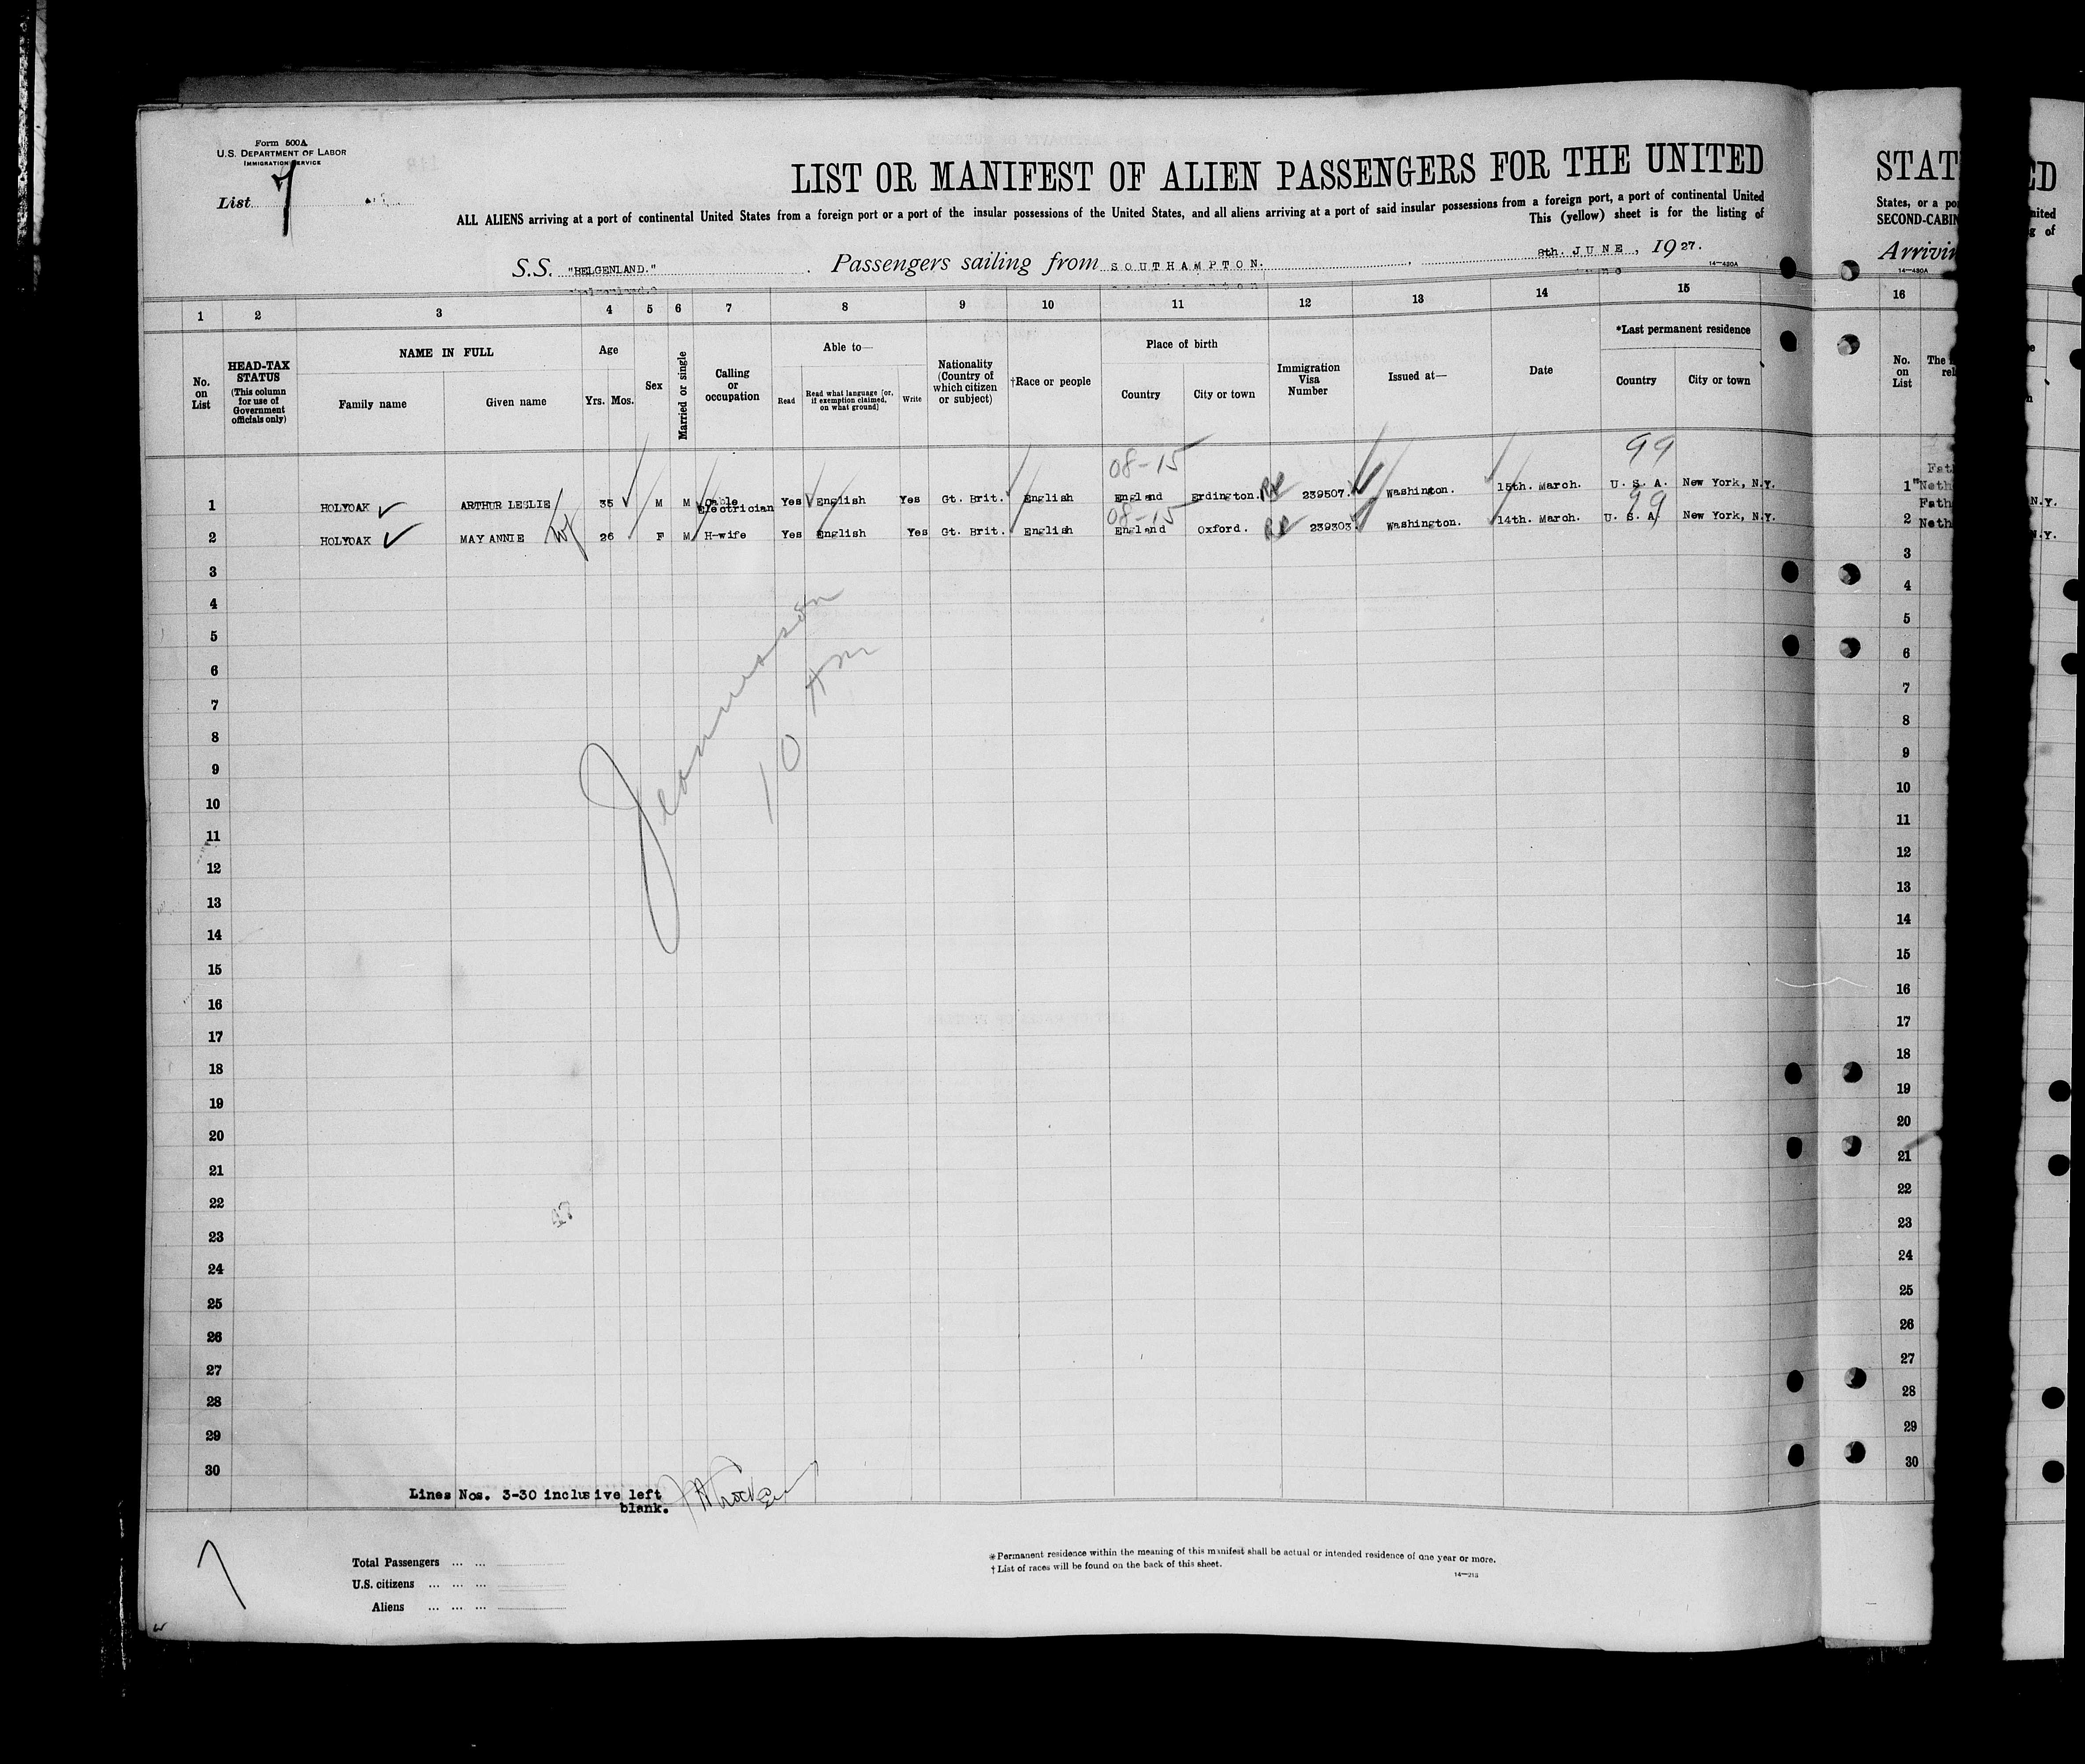 Form 500A
U.S. DEPARTMENT OF LABOR
IMMIGRATION SERVICE
List 7
LIST OR MANIFEST OF ALIEN PASSENGERS FOR THE UNITED
ALL ALIENS arriving at a port of continental United States from a foreign port or a port of the insular possessions of the United States, and all aliens arriving at a port of said insular possessions from a foreign port, a port of continental United
This (yellow) sheet is for the listing of
S.S. "BELGENLAND." Passengers sailing from SOUTHAMPTON. 8th. JUNE, 1927.
14—430A
1 2 3 4 5 6 7 8 9 10 11 12 13 14 15
No. on List
HEAD-TAX STATUS (This column for use of Government officials only)
NAME IN FULL
Family name Given name
Age
Yrs. Mos.
Sex
Married or single
Calling or occupation
Able to—
Read
Read what language [or, if exemption claimed, on what ground]
Write
Nationality (Country of which citizen or subject)
†Race or people
Place of birth
Country City or town
Immigration Visa Number
Issued at—
Date
*Last permanent residence
Country City or town
08-15 99
1 HOLYOAK ARTHUR LESLIE 35 M M Cable Electrician Yes English Yes Gt. Brit. English England Erdington. 239507. Washington. 15th. March. U. S. A. New York, N.Y.
08-15 99
2 HOLYOAK MAY ANNIE Wf 26 F M H-wife Yes English Yes Gt. Brit. English England Oxford. 239303 Washington. 14th. March. U. S. A. New York, N.Y.
3
4
5
6
7
8
9
10
11
12
13
14
15
16
17
18
19
20
21
22
23
24
25
26
27
28
29
30
10 AM
Lines Nos. 3-30 inclusive left
blank.
7
Total Passengers ... ...
U.S. citizens ... ... ...
Aliens ... ... ...
*Permanent residence within the meaning of this manifest shall be actual or intended residence of one year or more.
†List of races will be found on the back of this sheet.
14—213
STAT
States, or a po
SECOND-CABIN
Arrivin
14—430A
16
No. on List
The
rel
1
2
3
4
5
6
7
8
9
10
11
12
13
14
15
16
17
18
19
20
21
22
23
24
25
26
27
28
29
30
Fath
Neth
Fath
Neth
ED
nited
g of
N.Y.
N.Y.